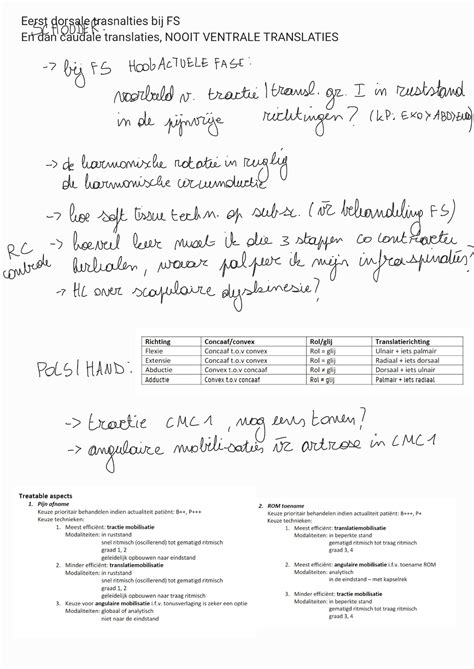 Eerst dorsale trasnalties bij FS
SCHOUDER:
En dan caudale translaties, NOOIT VENTRALE TRANSLATIES
-> bij FS HOOGACTUELE FASE:
voorbeeld v. tractie/transl. gr. I in ruststand
in de pijnvrije richtingen? (KP. EXO > ABD > ENDO)
-> de harmonische rotatie in ruglig
de harmonische circumductie
-> hoe soft tissue techn. op subsc. (voor behandeling FS)
RC controle
-> hoeveel keer moet ik die 3 stappen co contractie
herhalen, waar palpeer ik mijn infraspinatus?
-> HC over scapulaire dyskinesie?
Richting Concaaf/convex Rol/glij Translatierichting
Flexie Concaaf t.o.v convex Rol = glij Ulnair + iets palmair
Extensie Concaaf t.o.v convex Rol = glij Radiaal + iets dorsaal
Abductie Convex t.o.v concaaf Rol ≠ glij Dorsaal + iets ulnair
Adductie Convex t.o.v concaaf Rol ≠ glij Palmair + iets radiaal
POLS/HAND:
-> tractie CMC1, nog eens tonen?
-> angulaire mobilisaties voor artrose in CMC1
Treatable aspects
1. Pijn afname
Keuze prioritair behandelen indien actualiteit patiënt: B++, P+++
Keuze technieken:
1. Meest efficiënt: tractie mobilisatie
Modaliteiten: in ruststand
snel ritmisch (oscillerend) tot gematigd ritmisch
graad 1, 2
geleidelijk opbouwen naar eindstand
2. Minder efficiënt: translatiemobilisatie
Modaliteiten: in ruststand
snel ritmisch (oscillerend) tot gematigd ritmisch
graad 1, 2
geleidelijk opbouwen naar eindstand
3. Keuze voor angulaire mobilisatie i.f.v. tonusverlaging is zeker een optie
Modaliteiten: globaal of analytisch
niet naar de eindstand
2. ROM toename
Keuze prioritair behandelen indien actualiteit patiënt: B+++, P+
Keuze technieken:
1. Meest efficiënt: translatiemobilisatie
Modaliteiten: in beperkte stand
gematigd ritmisch tot traag ritmisch
graad 3, 4
2. Meest efficiënt: angulaire mobilisatie i.f.v. toename ROM
Modaliteiten: analytisch
in de eindstand – met kapselrek
3. Minder efficiënt: tractie mobilisatie
Modaliteiten: in beperkte stand
gematigd ritmisch tot traag ritmisch
graad 3, 4